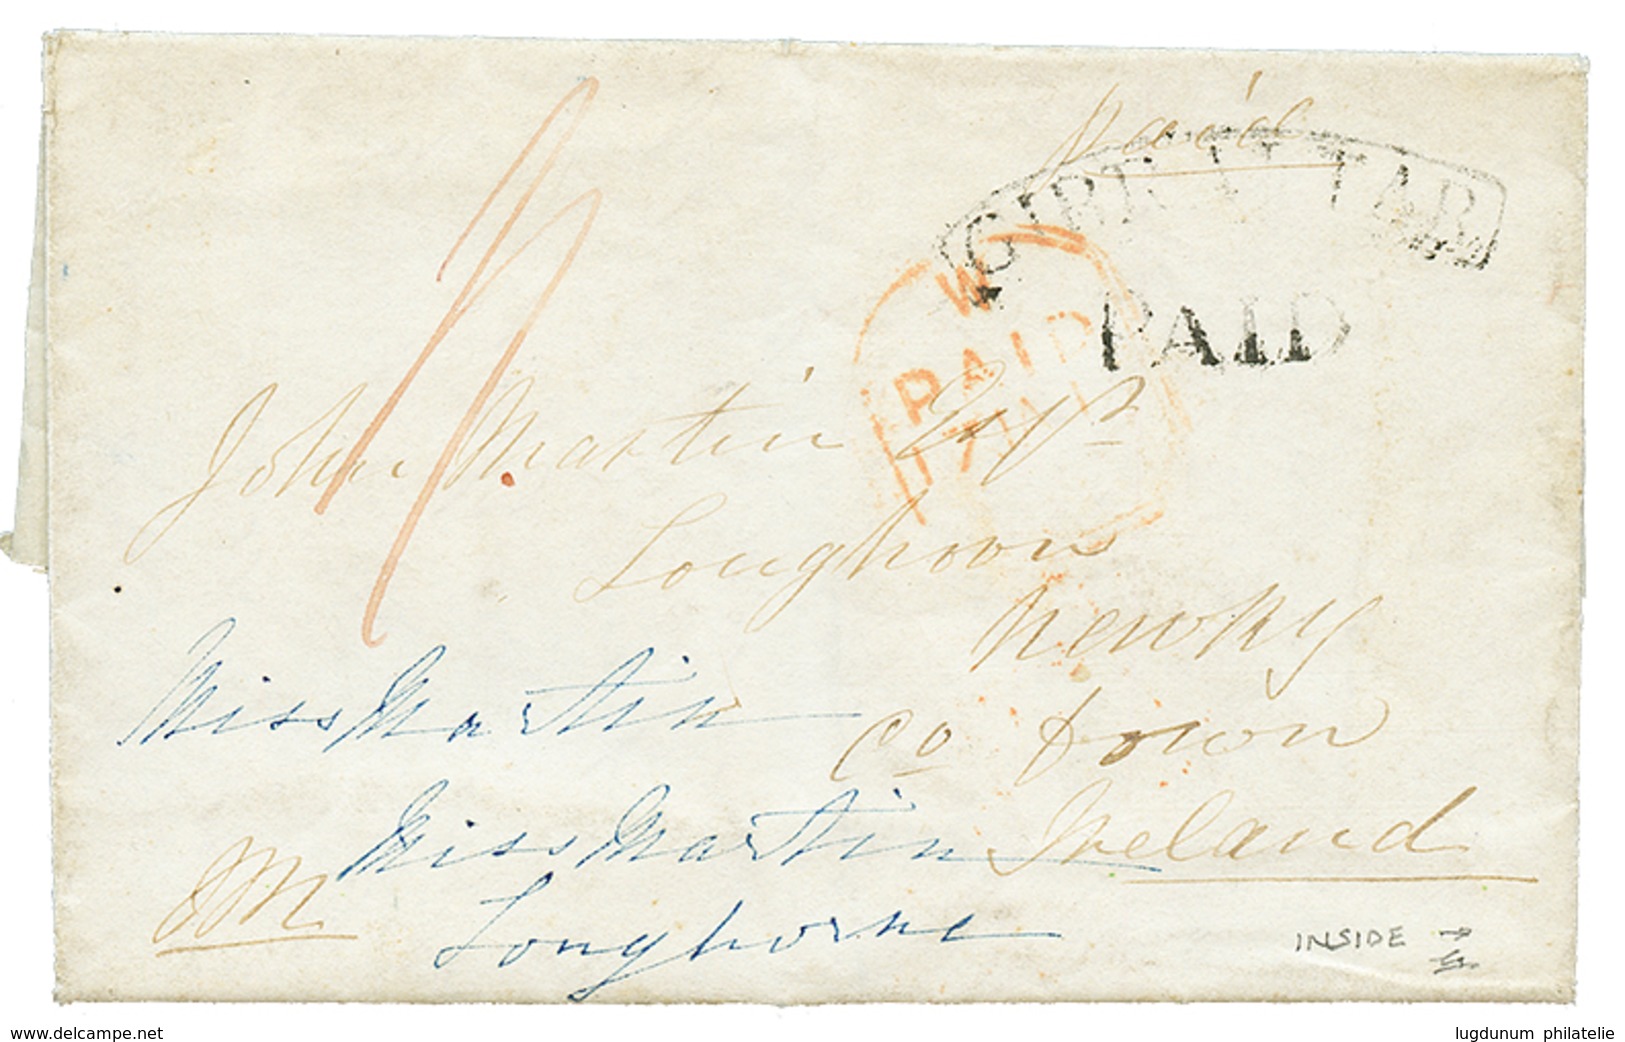 Paid
GIBRALTAR
PAID
W
PAID
17
John Martin Esqr
Loughorns
Newry
Co Down
Ireland
Miss Martin
Miss Martin
Longhorne
INSIDE
www.delcampe.net
lugdunum philatelie